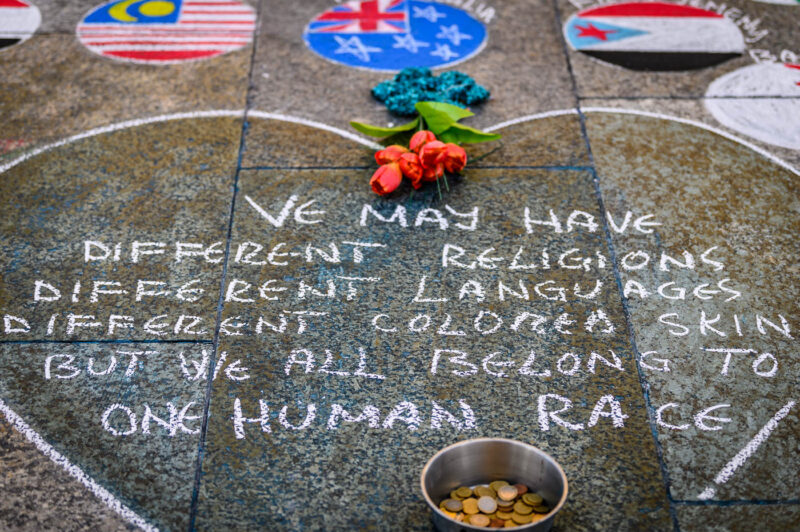 VE MAY HAVE
DIFFERENT RELIGIONS
DIFFERENT LANGUAGES
DIFFERENT COLORED SKIN
BUT WE ALL BELONG TO
ONE HUMAN RACE